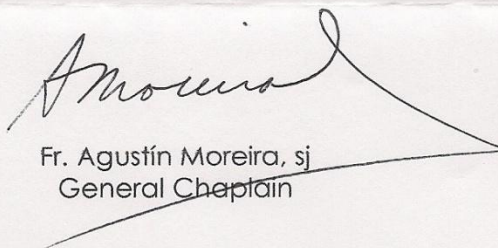 AMoreira
Fr. Agustín Moreira, sj
General Chaplain